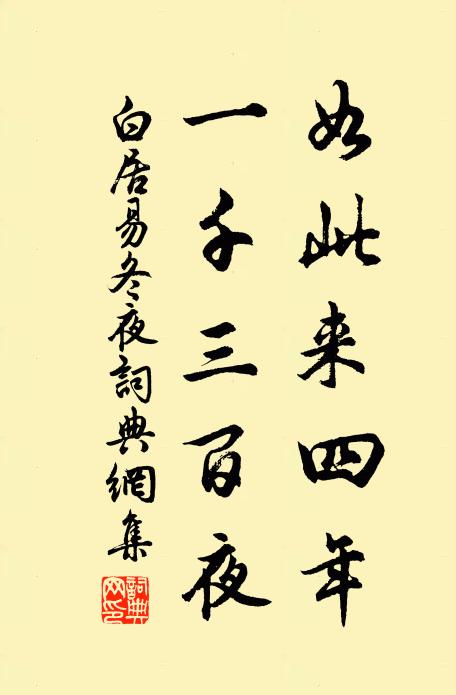 如此来四年
一千三百夜
白居易冬夜詞典網集
詞典網印